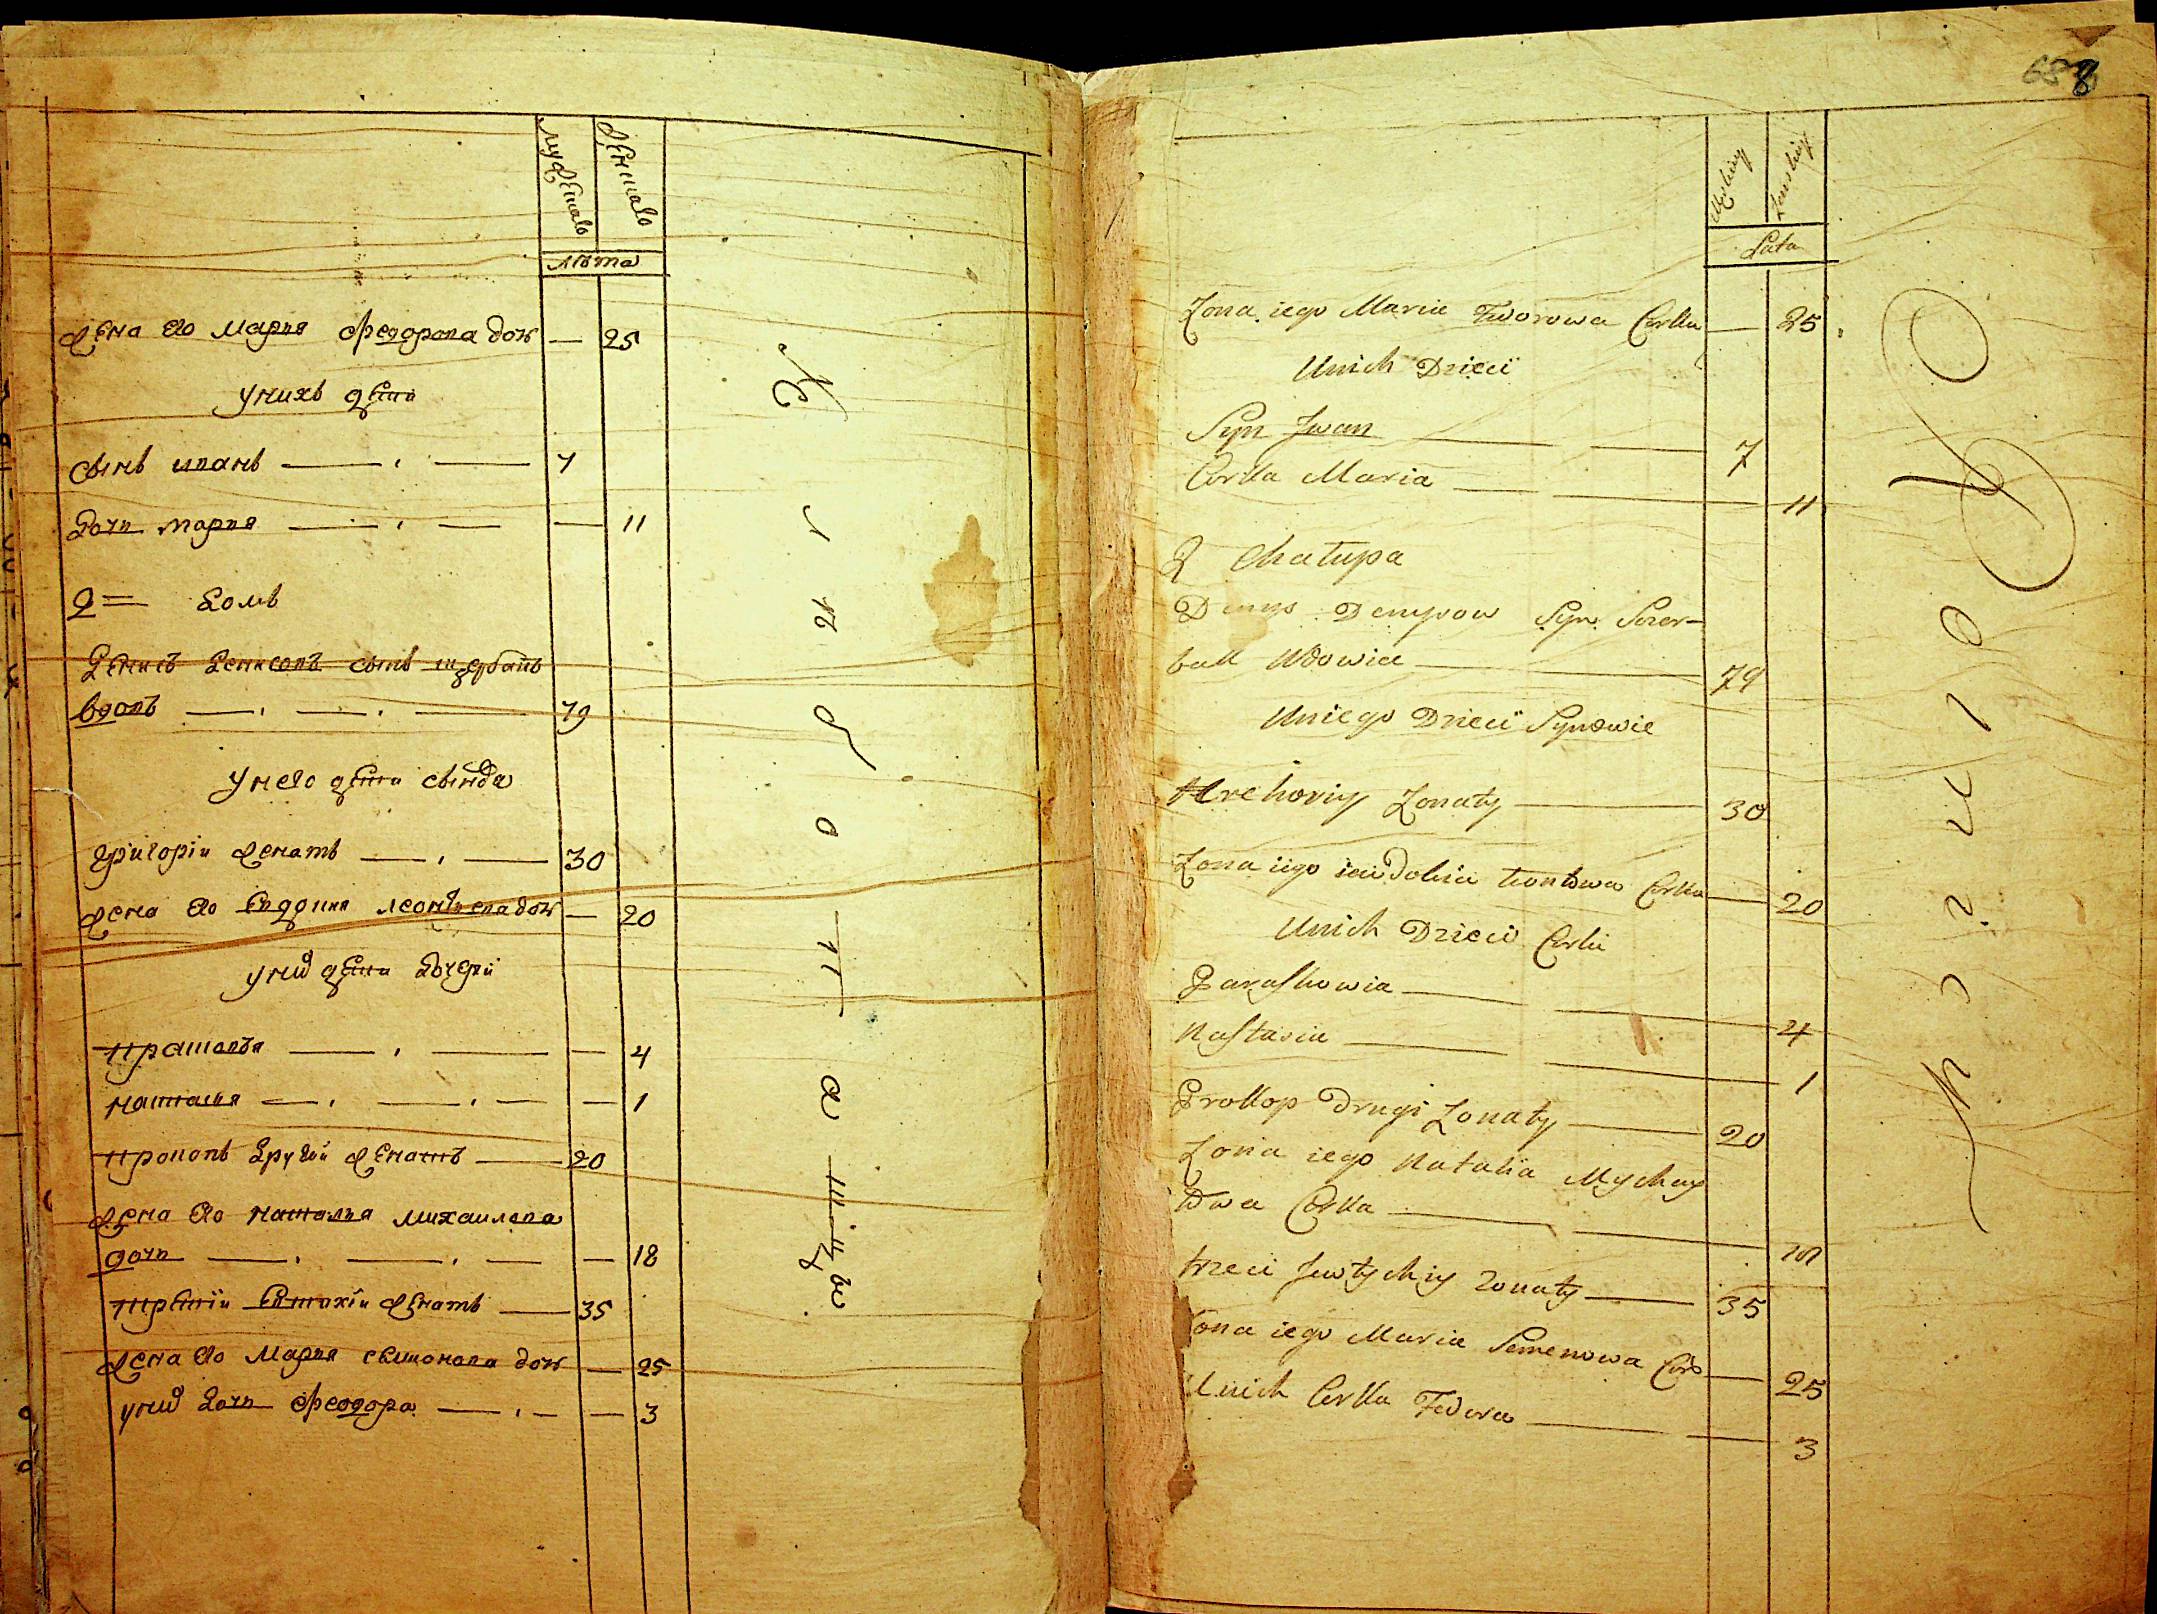 мужеска
женска
лѣта
жена его Мария Феодорова доч — 25
у нихъ дети
сынъ иванъ — 7
дочь мария — 11
2 = домъ
Денисъ Денисовъ сынъ щербанъ
вдовъ — 79
у него дети сынова
григоріи женатъ — 30
жена его Евдокия леонтиева доч — 20
у них дети дочери
прасковья — 4
наталия — 1
прокопъ другой женатъ — 20
жена его наталия михаилова
дочь — 18
третіи Евтихіи женатъ — 35
жена его Мария симонова доч — 25
у них дочь феодора — 3
68
8
Męskiey
Zenskiey
Lata
Zona iego Maria Fedorowa Corka — 25
Unich Dzieci
Syn Jwan — 7
Corka Maria — 11
2 Chatupa
Denys Denysow Syn Szczer-
bak Wdowiec — 79
Uniego Dzieci Synowie
Hrehoriy Zonaty — 30
Zona iego Jewdokia Leontowa Corka — 20
Unich Dzieci Corki
Paraskowia — 4
Nastasia — 1
Prokop Drugi Zonaty — 20
Zona iego Natalia Mychay
Corka — 18
trzeci Jewtychiy Zonaty — 35
Zona iego Maria Semenowa Cor — 25
Unich Corka Fedora — 3